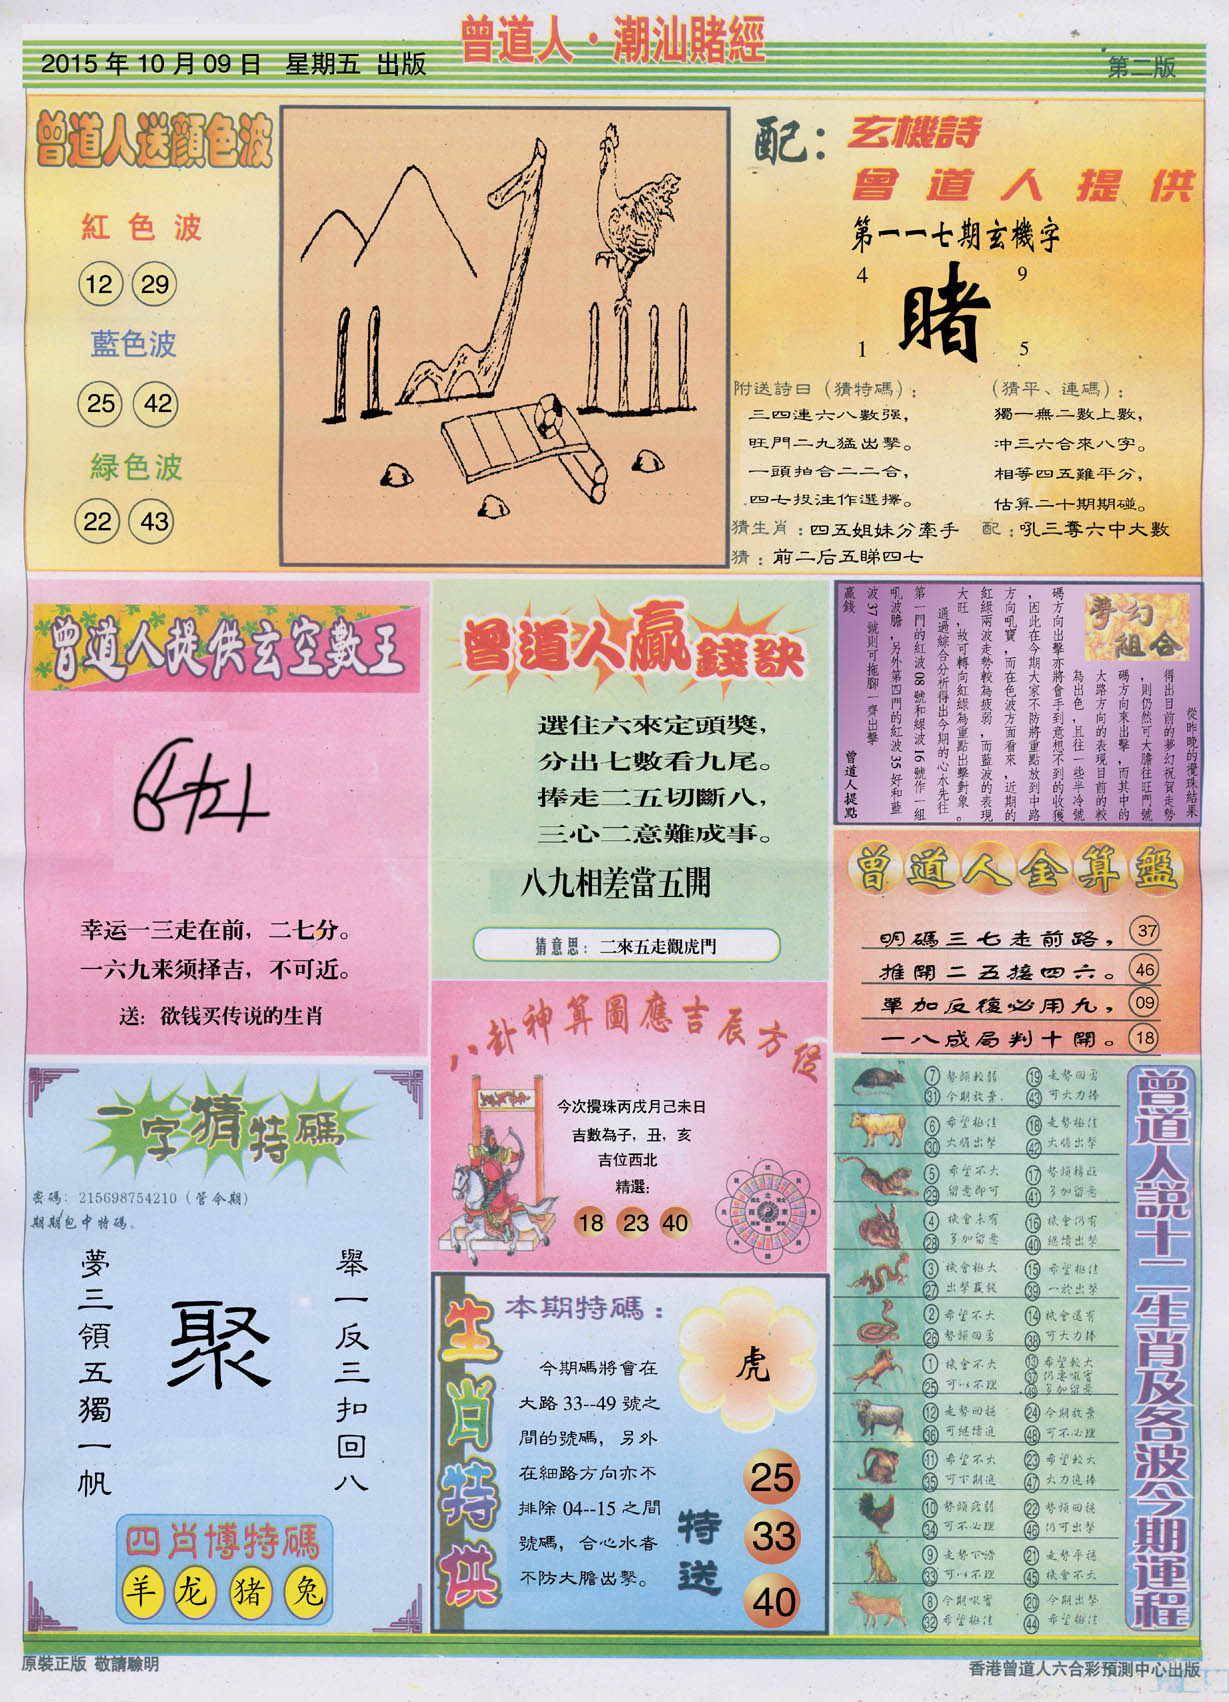 曾道人·潮汕賭經
2015 年 10 月 09 日 星期五 出版
第二版
曾道人送顏色波
紅色波
12 29
藍色波
25 42
緑色波
22 43
配：玄機詩
曾道人提供
第一一七期玄機字
4 9
賭
1 5
附送詩曰（猜特碼）：
三四連六八數强，
旺門二九猛出擊。
一頭拍合二二合，
四七投注作選擇。
（猜平、連碼）：
獨一無二數上數，
冲三六合來八字。
相等四五難平分，
估算二十期期碰。
猜生肖：四五姐妹分牽手
配：吼三奪六中大數
猜：前二后五睇四七
曾道人提供玄空數王
幸运一三走在前，二七分。
一六九来须择吉，不可近。
送：欲钱买传说的生肖
曾道人贏錢訣
選住六來定頭獎，
分出七數看九尾。
捧走二五切斷八，
三心二意難成事。
八九相差當五開
猜意思：二來五走觀虎門
夢幻組合
從昨晚的攪珠結果
得出目前的夢幻祝賀走勢
，則仍然可大膽往旺門號
碼方向來出擊，而其中的
大路方向的表現目前的較
為出色，且往一些半冷號
碼方向出擊亦將會手到意想不到的收獲
，因此在今期大家不防將重點放到中路
方向吼寶，而在色波方面看來，近期的
紅綠兩波走勢較為疲弱，而藍波的表現
大旺，故可轉向紅綠為重點出擊對象。
通過綜合分析得出今期的心水先往
第一門的紅波 08 號和綠波 16 號作一組
吼波膽，另外第四門的紅波 35 好和藍
波 37 號則可拖腳一齊出擊
贏錢
曾道人提點
曾道人金算盤
明碼三七走前路， 37
推開二五接四六。 46
單加反復必用九， 09
一八成局判十開。 18
八卦神算圖應吉辰方位
今次攪珠丙戌月己未日
吉數為子，丑，亥
吉位西北
精選：
18 23 40
一字猜特碼
密碼：215698754210（管令期）
期期包中特碼。
舉一反三扣回八
聚
夢三領五獨一帆
四肖博特碼
羊 龙 猪 兔
生肖特供
本期特碼：
虎
今期碼將會在
大路 33--49 號之
間的號碼，另外
在細路方向亦不
排除 04--15 之間
號碼，合心水者
不防大膽出擊。
特送
25
33
40
曾道人説十二生肖及各波今期運程
7 勢頭較弱 19 走勢回勇
31 今期放棄. 43 可大力捧
6 希望極佳 18 走勢極佳
30 大膽出擊 42 大膽出擊
5 希望不大 17 勢頭轉旺
29 留意即可 41 多加留意
4 機會未有 16 機會仍有
28 多加留意 40 繼續出擊
3 機會極大 15 希望極佳
27 出擊贏錢 39 一於出擊
2 希望不大 14 機會還有
26 勢頭回勇 38 可大力捧
1 機會不大 13 希望較大
25 可以不理 37 仍要吸寶
49 多加留意
12 走勢回穩 24 今期放棄
36 可繼續追 48 可不必理
11 希望不大 23 希望較大
35 可下期追 47 大力追捧
10 勢頭疲弱 22 勢頭回穩
34 可不必理 46 仍可出擊
9 走勢下滑 21 走勢平穩
33 可以不理 45 機會不大
8 今期吸寶 20 今期出擊
32 希望極佳 44 希望極佳
原裝正版 敬請驗明
香港曾道人六合彩預測中心出版